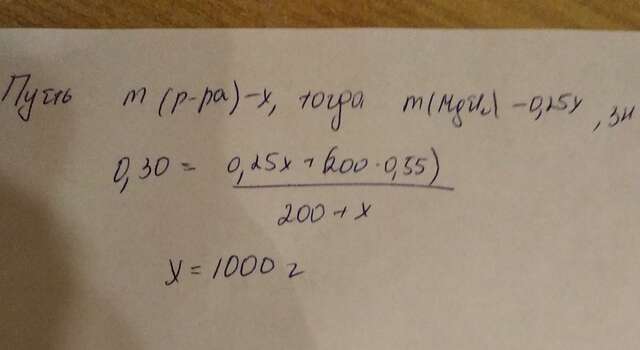 Пусть m (р-ра) - x, тогда m(MgCl₂) - 0,25x, зн
0,30 = 0,25x + (200 · 0,55)
200 + x
x = 1000 г